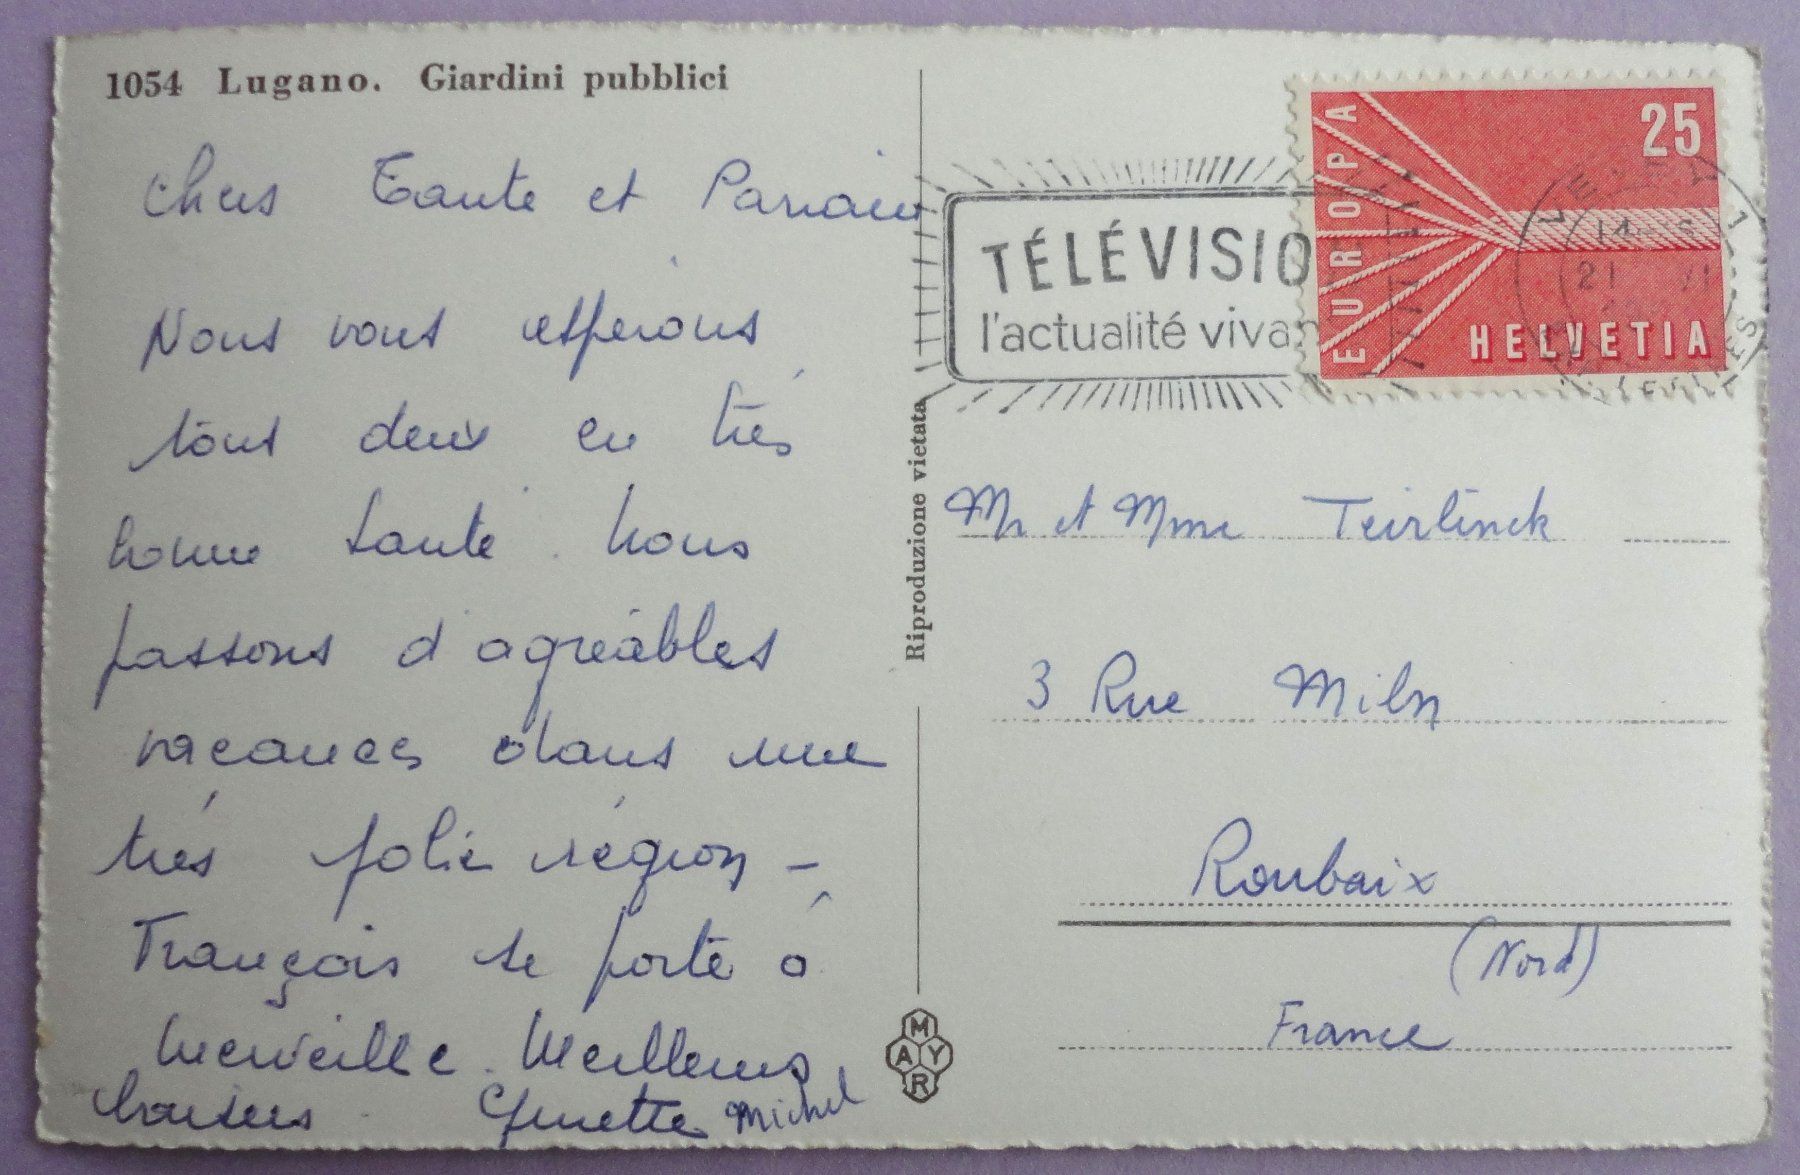 1054 Lugano. Giardini pubblici
Chers Tante et Parrain
Nous vous espérons
tous deux en très
bonne santé. Nous
passons d'agréables
vacances dans une
très jolie région -
François se porte à
merveille. Meilleurs
baisers. Ginette Michel
Riproduzione vietata
MAYR
TÉLÉVISIO
l'actualité vivan
EUROPA
25
HELVETIA
VEVEY 1
14
21 VI
Mr et Mme Teirlinck
3 Rue Miln
Roubaix
(Nord)
France